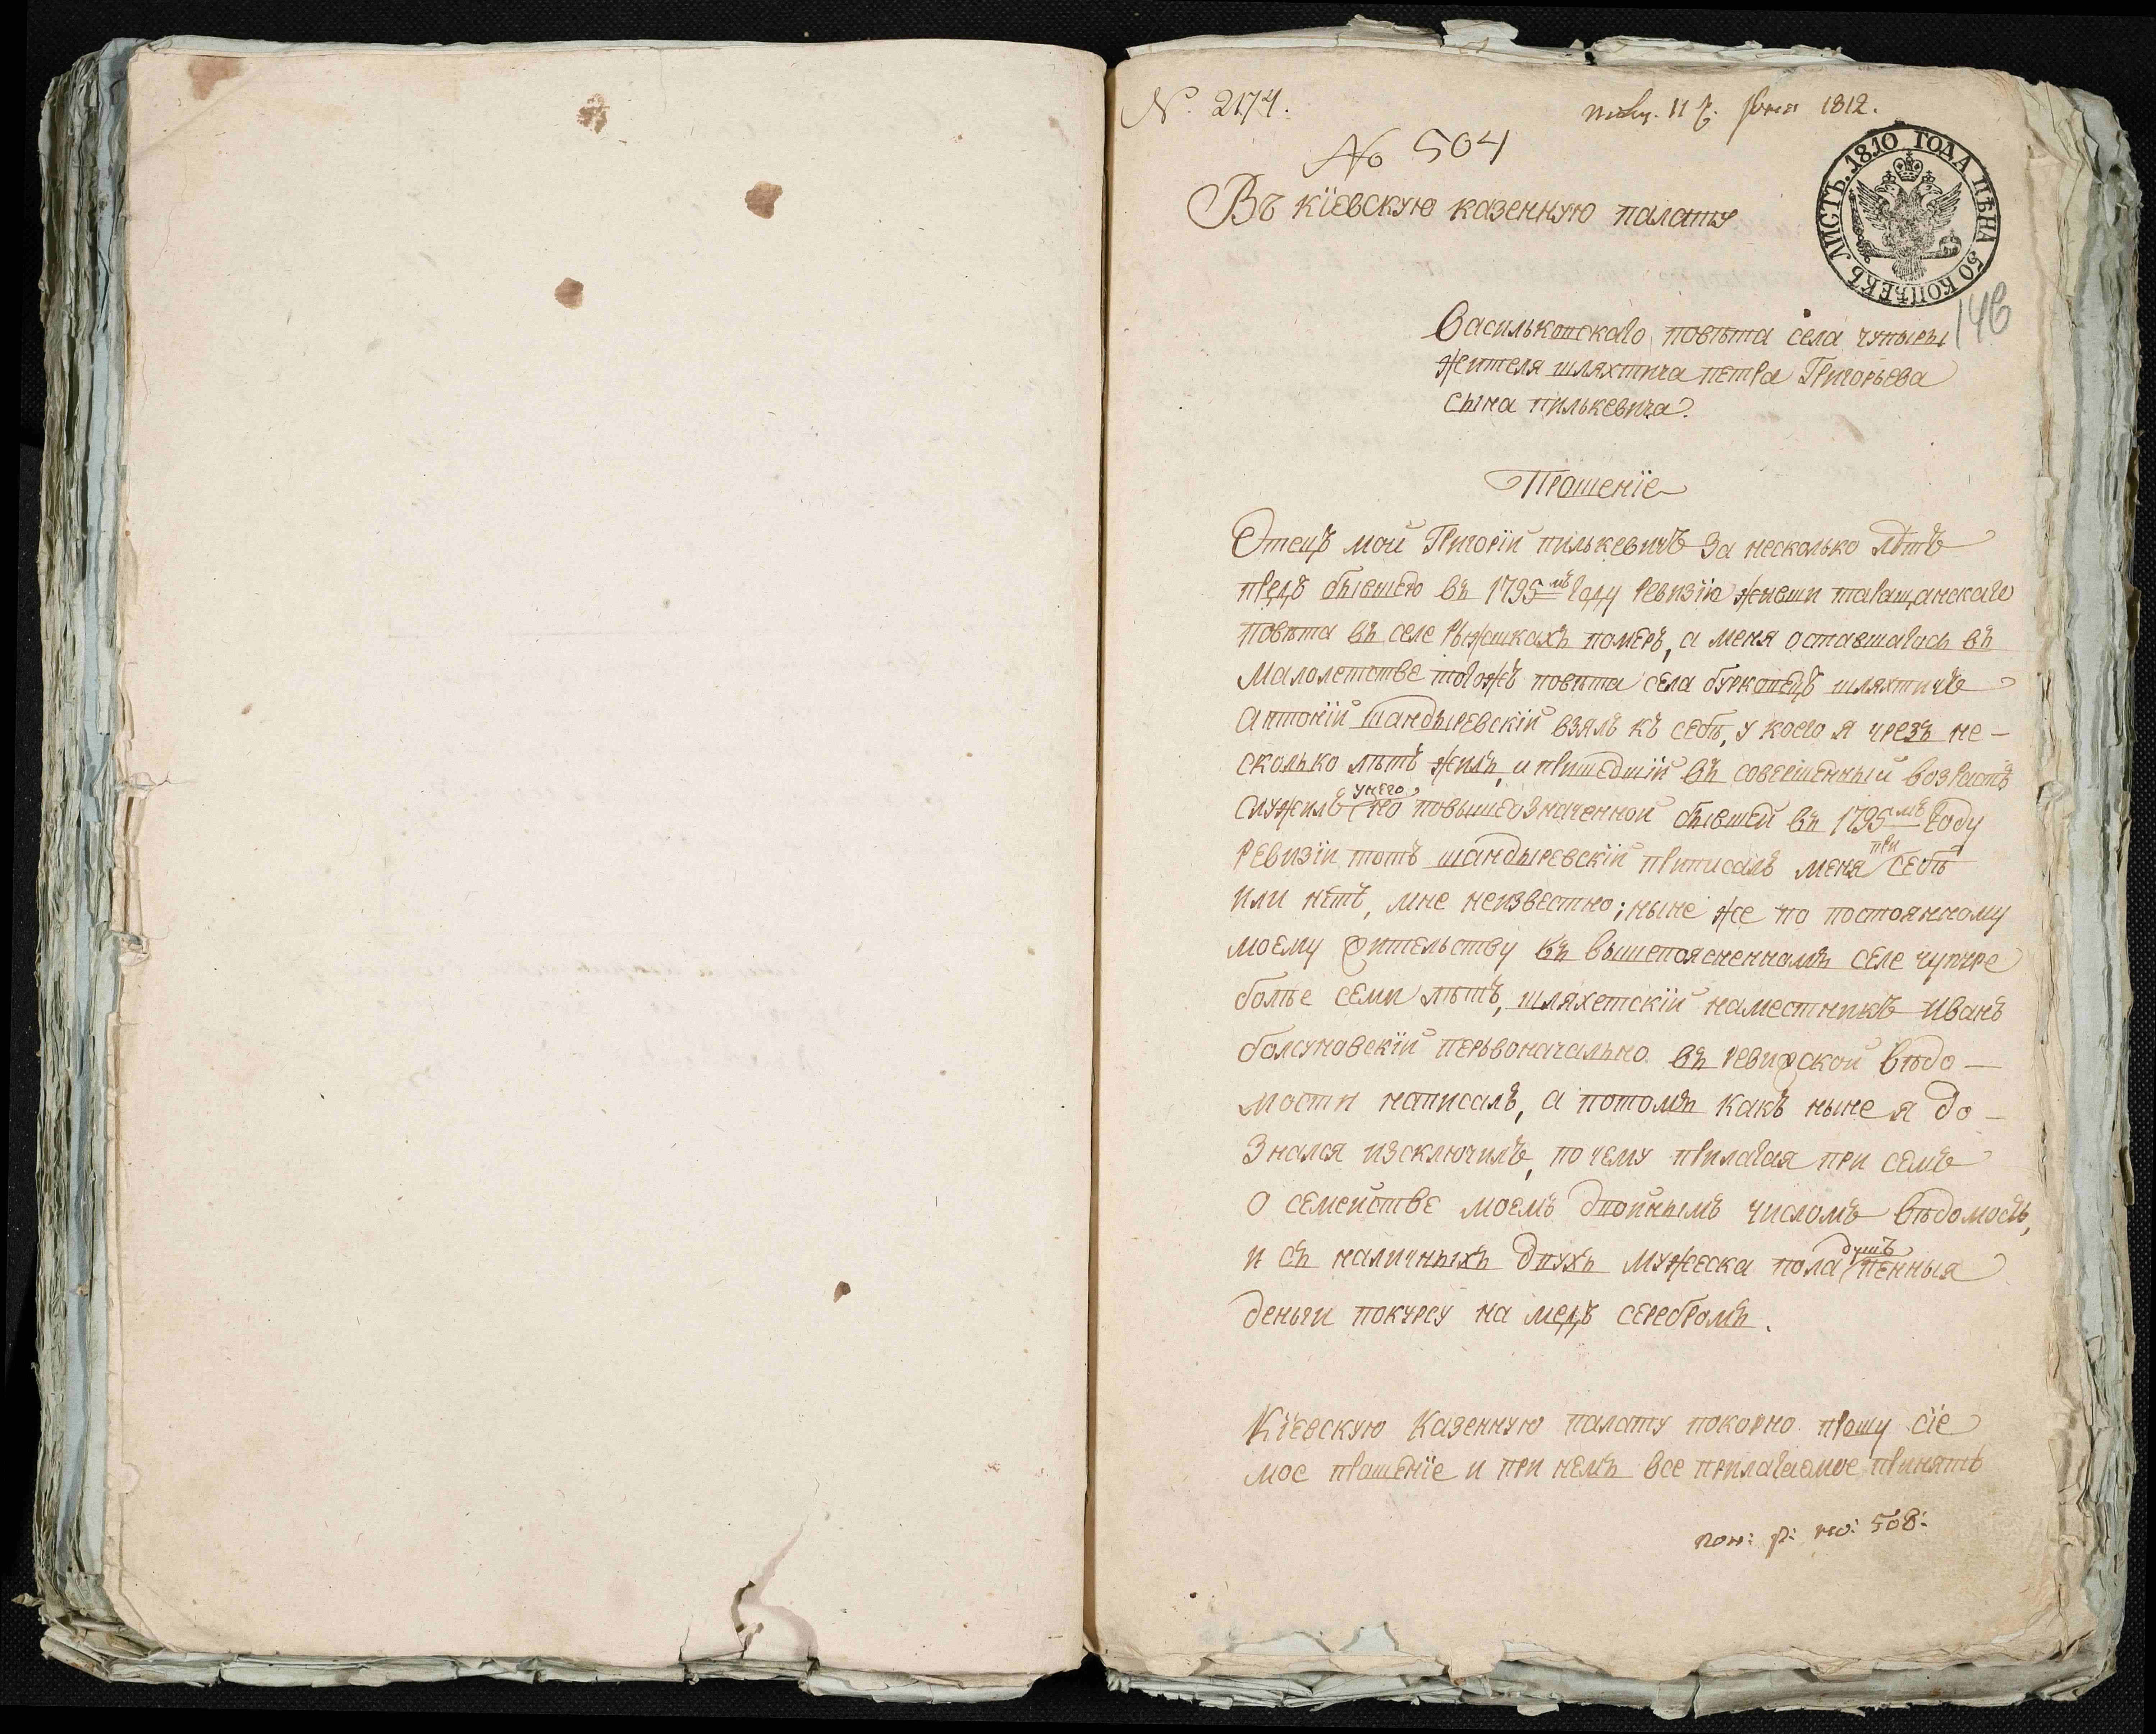 № 2174.
11 1812.
№ 504
Въ кіевскую казенную палату
ЛИСТЪ. 1810 ГОДА ЦѢНА 50 КОПѢЕКЪ
146
Васильковскаго повѣта села чупыры
жителя шляхтича петра Григорьева
сына пилькевича.
Прошеніе
Отецъ мой Григорій пилькевичъ за несколько лѣтъ
предъ бывшею въ 1795мъ году ревизію живши таращанскаго
повѣта въ селе рыжкахъ померъ, а меня оставшагось въ
малолетстве тогожъ повѣта села бурковецъ шляхтичъ
антоній шандыревскій взялъ къ себѣ, у коего я чрезъ не-
сколько лѣтъ жилъ, и пришедшій въ совершенный возрастъ
служилъ у него, по повышеозначенной бывшей въ 1795мъ году
ревизіи тотъ шандыревскій приписалъ меня при себѣ
или нетъ, мне неизвестно; ныне же по постоянному
моему жительству въ вышепоясненномъ селе чупыре
болѣе семи лѣтъ, шляхетскій наместникъ иванъ
болсуновскій перьвоначально въ ревизской вѣдо-
мости написалъ, а потомъ какъ ныне я до-
знался изсключилъ, по чему прилагая при семъ
о семействе моемъ двойнымъ числомъ вѣдомость,
и съ наличныхъ двухъ мужеска пола душъ пенныя
деньги покурсу на медь серебромъ.
Кіевскую Казенную палату покорно прошу сіе
мое прошеніе и при немъ все прилагаемое принять
508: